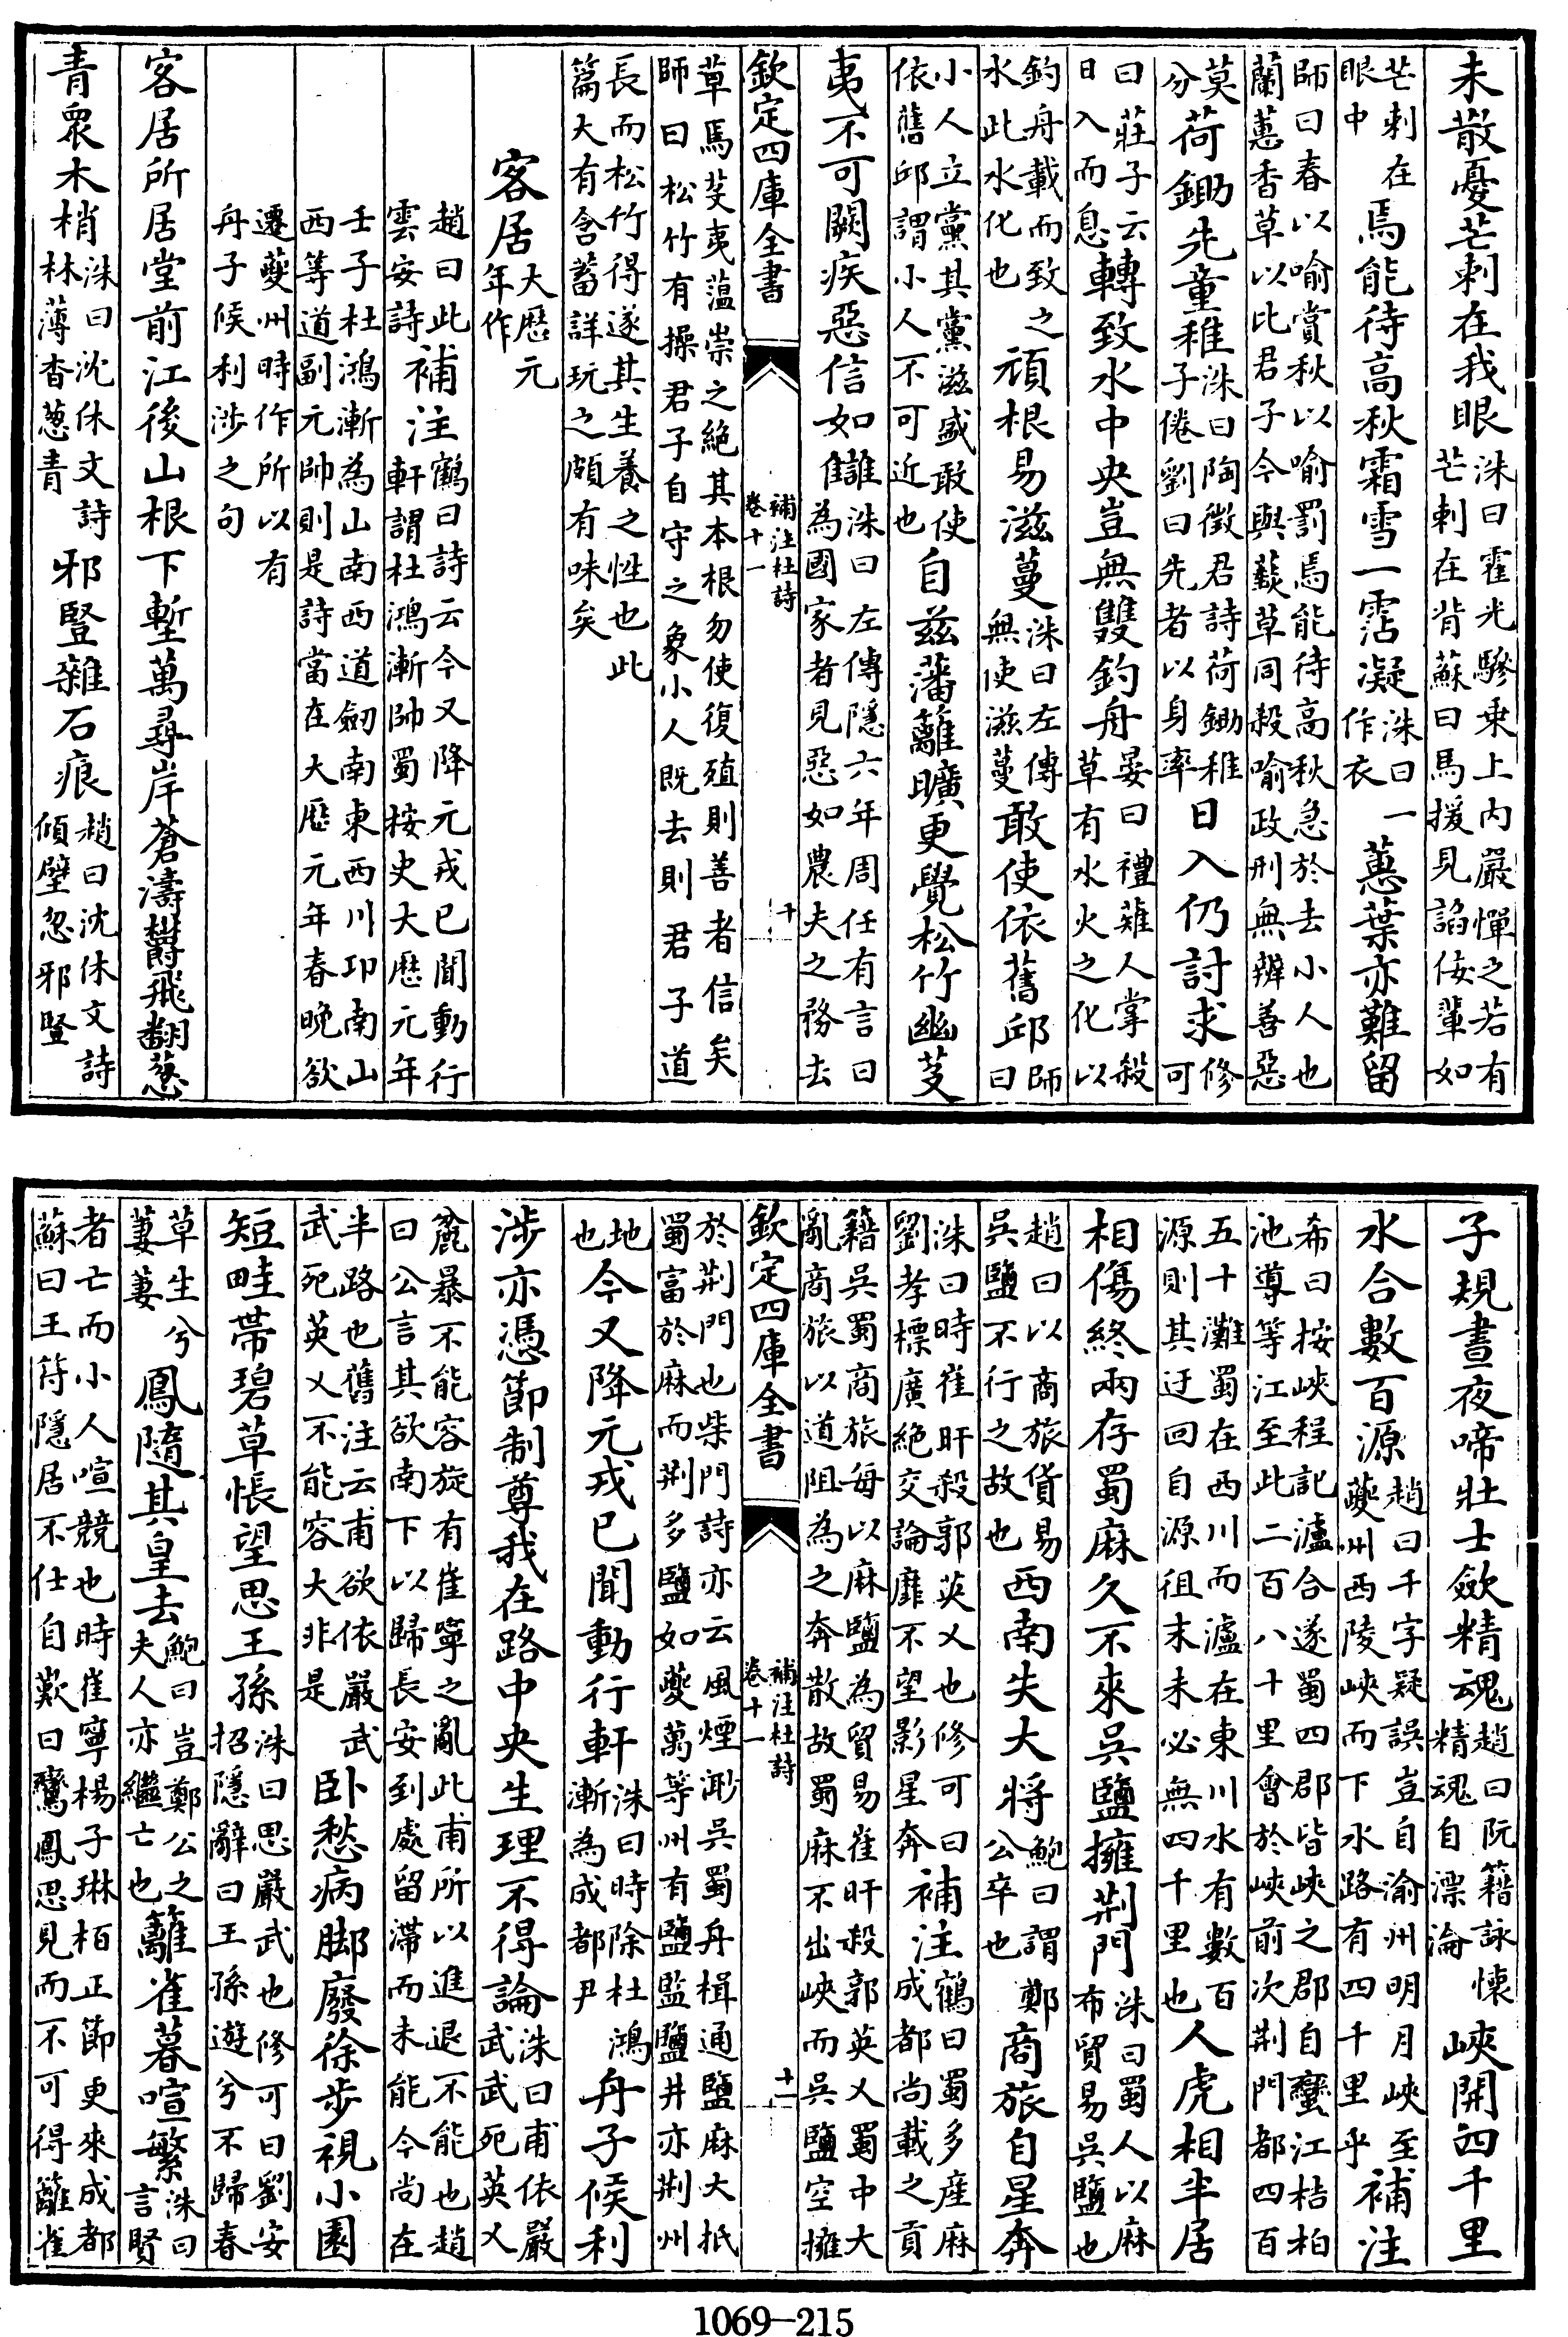 未散憂芒刺在我眼洙曰霍光驂乗上内嚴憚之若有芒刺在背蘇曰馬援見諂佞輩如
芒刺在眼中焉能待高秋霜雪一霑凝洙曰一作衣蕙葉亦難留
師曰春以喻賞秋以喻罰焉能待高秋急於去小人也蘭蕙香草以此君子今與蕪草同殺喻政刑無辨善惡
莫分荷鋤先童稚洙曰陶徵君詩荷鋤稚子倦劉曰先者以身率日入仍討求修可
曰莊子云日入而息轉致水中央豈無雙釣舟晏曰禮薙人掌殺草有水火之化以
釣舟載而致之水此水化也頑根易滋蔓洙曰左傳無使滋蔓敢使依舊邱師曰
小人立黨其黨滋盛敢使依舊邱謂小人不可近也自兹藩籬曠更覺松竹幽芟
夷不可闕疾惡信如讎洙曰左傳隱六年周任有言曰為國家者見惡如農夫之務去
欽定四庫全書 補注杜詩 卷十一 十
草焉芟夷薀崇之絶其本根勿使復殖則善者信矣師曰松竹有操君子自守之象小人既去則君子道
長而松竹得遂其生養之性也此篇大有含蓄詳玩之頗有味矣
客居大歴元年作
趙曰此雲安詩補注鶴曰詩云今又降元戎已聞動行軒謂杜鴻漸帥蜀桉史大歴元年
壬子杜鴻漸為山南西道劒南東西川卭南山西等道副元帥則是詩當在大歴元年春晚欲
遷夔州時作所以有舟子候利涉之句
客居所居堂前江後山根下塹萬尋岸蒼濤鬱飛翻葱
青衆木梢洙曰沈休文詩林薄杳葱青邪豎雜石痕趙曰沈休文詩傾壁忽邪豎
子規晝夜啼壯士歛精魂趙曰阮籍詠懷精魂自漂淪峽開四千里
水合數百源趙曰千字疑誤豈自渝州明月峽至夔州西陵峽而下水路有四千里乎補注
希曰按峽程記瀘合遂蜀四郡皆峽之郡自蠻江桔柏池導等江至此二百八十里會於峽前次荆門都四百
五十灘蜀在西川而瀘在東川水有數百源則其迂回自源徂末未必無四千里也人虎相半居
相傷終兩存蜀麻久不來吳鹽擁荆門洙曰蜀人以麻布貿易吳鹽也
趙曰以商旅貨易吳鹽不行之故也西南失大將鮑曰謂鄭公卒也商旅自星奔
洙曰時崔旰殺郭英乂也修可曰劉孝標廣絶交論靡不望影星奔補注鶴曰蜀多産麻成都尚載之貢
籍吳蜀商旅每以麻鹽為貿易崔旰殺郭英乂蜀中大亂商旅以道阻為之奔散故蜀麻不出峽而吳鹽空擁
欽定四庫全書 補注杜詩 卷十一 十一
於荆門也柴門詩亦云風煙渺吳蜀舟楫通鹽麻大抵蜀富於麻而荆多鹽如夔萬等州有鹽監鹽井亦荆州
地也今又降元戎已聞動行軒洙曰時除杜鴻漸為成都尹舟子候利
涉亦憑節制尊我在路中央生理不得論洙曰甫依嚴武武死英乂
麄暴不能容旋有崔寧之亂此甫所以進退不能也趙曰公言其欲南下以歸長安到處留滯而未能今尚在
半路也舊注云甫欲依嚴武武死英乂不能容大非是卧愁病脚廢徐步視小園
短畦帶碧草悵望思王孫洙曰思嚴武也修可曰劉安招隱辭曰王孫遊兮不歸春
草生兮萋萋鳳隨其皇去鮑曰豈鄭公之夫人亦繼亡也籬雀暮喧繁洙曰言賢
者亡而小人喧競也時崔寧楊子琳栢正節更來成都蘇曰王符隱居不仕自歎曰鸞鳳思見而不可得籬雀
1069—215